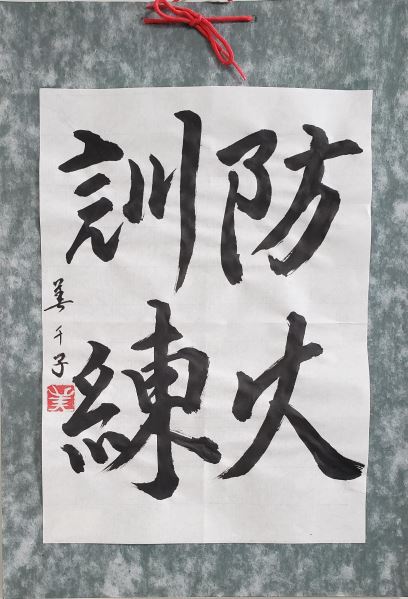 防火
訓練
美千子
美